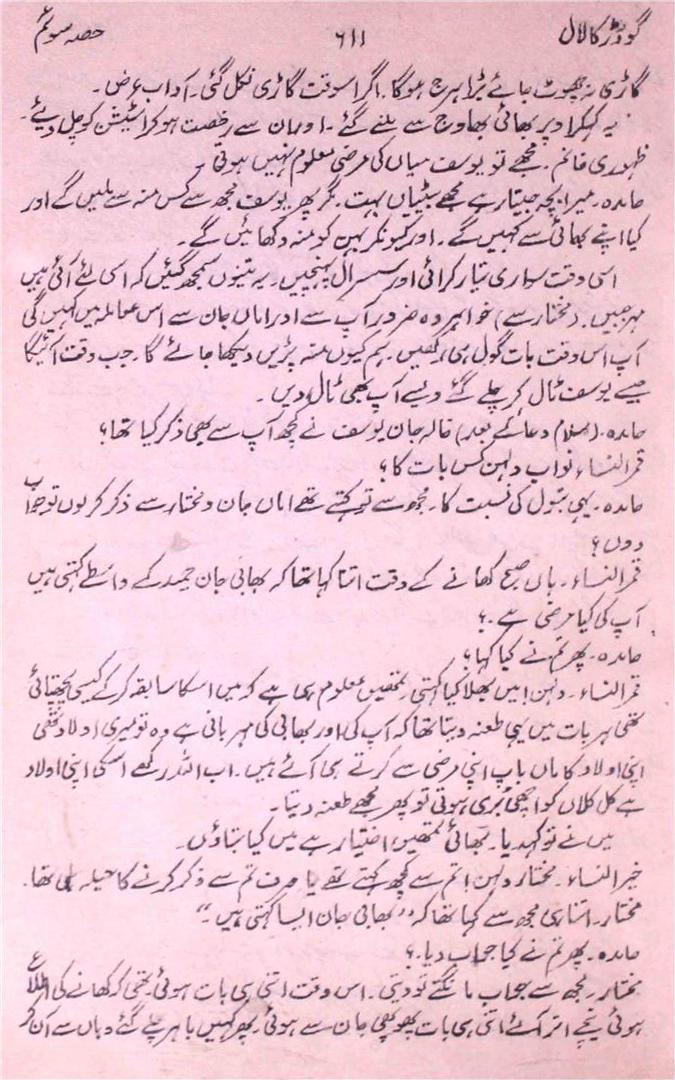 گودڑ کا لال ۶۱۱ حصہ سوئم
گاڑی نہ چھوٹ جائے بڑا ہرج ہوگا۔ اگر اسوقت گاڑی نکل گئی۔ آداب عرض۔
یہ کہکر اوپر بھائی بھاوج سے ملنے گئے۔ اور ان سے رخصت ہو کر اسٹیشن کو چل دیئے۔
ظہوری خانم۔ مجھے تو یوسف میاں کی مرضی معلوم نہیں ہوتی۔
حامدہ۔ میرا بچہ جیتا رہے مجھے بیٹیاں بہت۔ مگر پھر یوسف مجھ سے کس منہ سے ملیں گے اور
کیا اپنے بھائی سے کہیں گے۔ اور کیونکر بہن کو منہ دکھائیں گے۔
اسی وقت سواری تیار کرائی اور سسرال پہنچیں۔ یہ تینوں سمجھ گئیں کہ اسی لئے آئی ہیں
مہ جبیں۔ (مختار سے) خواہر وہ ضرور آپ سے اور اماں جان سے اس معاملہ میں کہیں گی
آپ اس وقت بات گول ہی رکھیں۔ ہم کیوں منہ پڑیں دیکھا جائے گا۔ جب وقت آئیگا
جیسے یوسف ٹال کر چلے گئے ویسے آپ بھی ٹال دیں۔
حامدہ۔ (سلام دعا کے بعد) خالہ جان یوسف نے کچھ آپ سے بھی ذکر کیا تھا؟
قمر النساء نواب دلہن کس بات کا؟
حامدہ۔ یہی بتول کی نسبت کا۔ مجھ سے تو کہتے تھے اماں جان و مختار سے ذکر کر لوں تو جواب
دوں؟
قمر النساء۔ ہاں صبح کھانے کے وقت اتنا کہا تھا کہ بھابی جان حمید کے واسطے کہتی ہیں
آپ کی کیا مرضی ہے۔؟
حامدہ۔ پھر تم نے کیا کہا؟
قمر النساء۔ دلہن! میں بھلا کیا کہتی۔ تمھیں معلوم ہی ہے کہ میں اسکا سابقہ کر کے کیسی پچھتائی
تھی ہر بات میں یہی طعنہ دیتا تھا کہ آپ کی اور بھابی کی مہربانی ہے وہ تو میری اولاد تھی
اپنی اولاد کا ماں باپ اپنی مرضی سے کرتے ہی آئے ہیں۔ اب اللہ رکھے اسکی اپنی اولاد
ہے کل کلاں کو اچھی بُری ہوتی تو پھر مجھے طعنہ دیتا۔
میں نے تو کہدیا۔ بھائی تمھیں اختیار ہے میں کیا بتاؤں۔
خیر النساء۔ مختار دلہن! تم سے کچھ کہتے تھے یا صرف تم سے ذکر کرنے کا حیلہ ہی تھا۔
مختار۔ اتنا ہی مجھ سے کہا تھا کہ "بھابی جان ایسا کہتی ہیں۔"
حامدہ۔ پھر تم نے کیا جواب دیا۔؟
مختار۔ مجھ سے جواب مانگتے تو دیتی۔ اس وقت اتنی ہی بات ہوئی تھی کہ کھانے کی اطلاع
ہوئی نیچے اتر آئے اتنی ہی بات پھوپھی جان سے ہوئی۔ پھر کہیں باہر چلے گئے وہاں سے آن کر